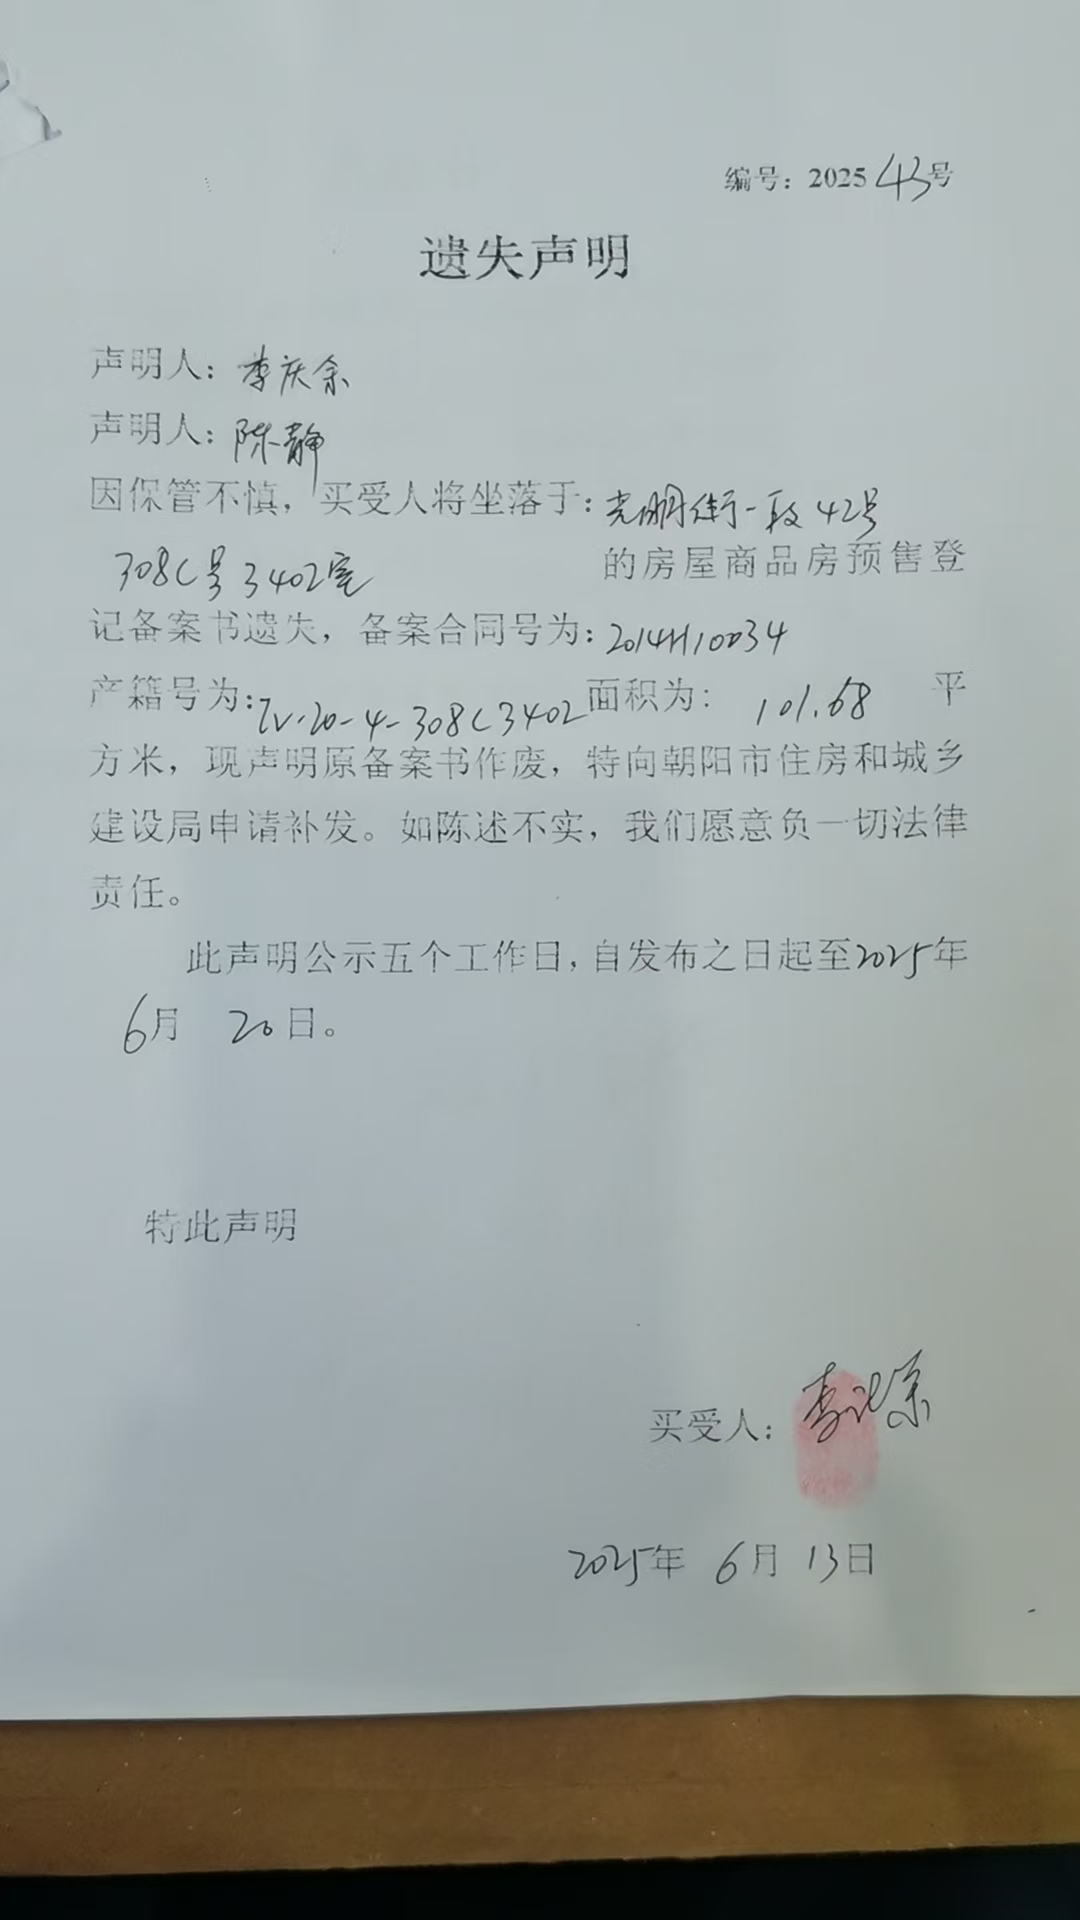 编号：2025 43号
遗失声明
声明人：李庆余
声明人：陈静
因保管不慎，买受人将坐落于：光明街一段42号
308C号3402室 的房屋商品房预售登
记备案书遗失，备案合同号为：2014H10034
产籍号为：IV-20-4-308C3402 面积为： 101.68 平
方米，现声明原备案书作废，特向朝阳市住房和城乡
建设局申请补发。如陈述不实，我们愿意负一切法律
责任。
此声明公示五个工作日，自发布之日起至2025年
6月 20日。
特此声明
买受人：李庆余
2025年 6月 13日